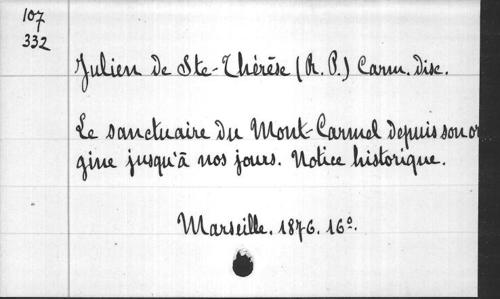 107
332
Julien de Ste-Thérèse (R. P.) Carm. disc.
Le sanctuaire du Mont-Carmel depuis son ori
gine jusqu'à nos jours. Notice historique.
Marseille. 1876. 16°.